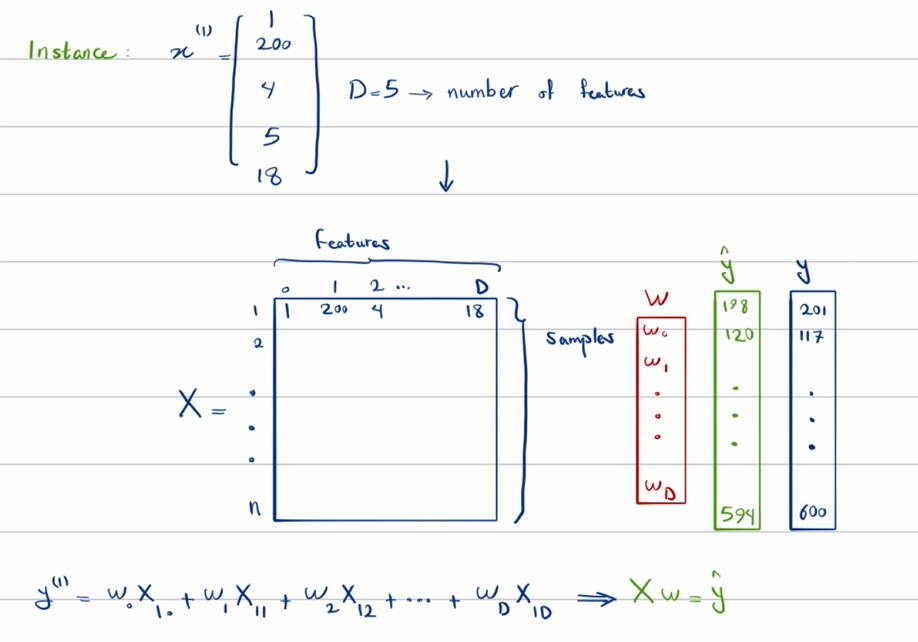 Instance: x^(1) = [1
200
4
5
18] D=5 → number of features
↓
features
0 1 2 ... D
1 1 200 4 18
2
.
.
.
n
X =
samples
w
w₀
w₁
.
.
.
w_D
ŷ
198
120
.
.
.
594
y
201
117
.
.
.
600
y^(1) = w₀X₁₀ + w₁X₁₁ + w₂X₁₂ + ... + w_D X_1D ⟹ Xw = ŷ